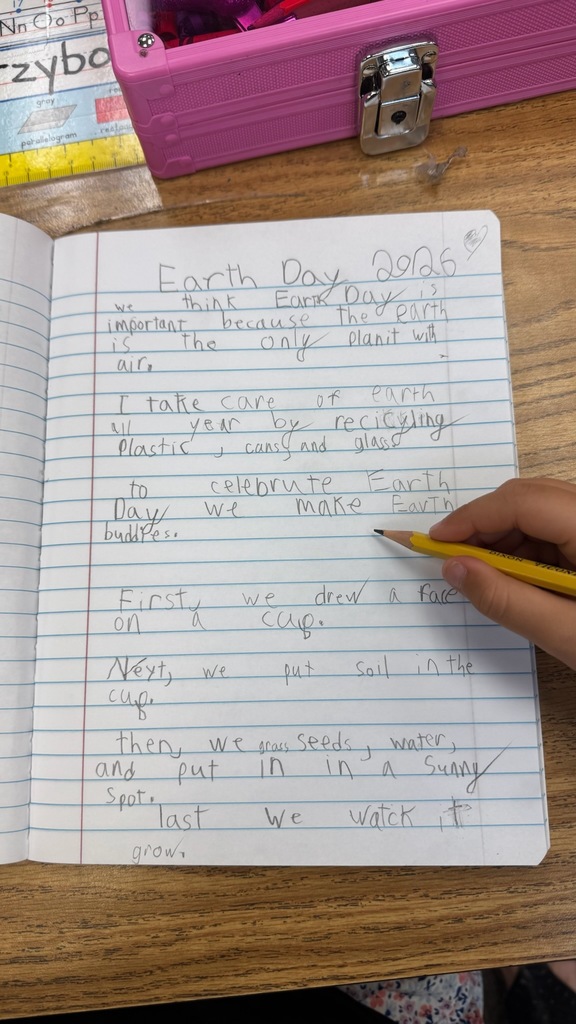 Nn Oo Pp
zybo
gray
parallelogram
Earth Day 2026
we think Earth Day is
important because the earth
is the only planit with
air.
I take care of earth
all year by recicyling
Plastic, cans, and glass
to celebrute Earth
Day we make Earth
buddies.
First, we drew a face
on a cup.
Next, we put soil in the
cup.
then, we grass seeds, water,
and put in in a sunny
spot.
last we watck it
grow.